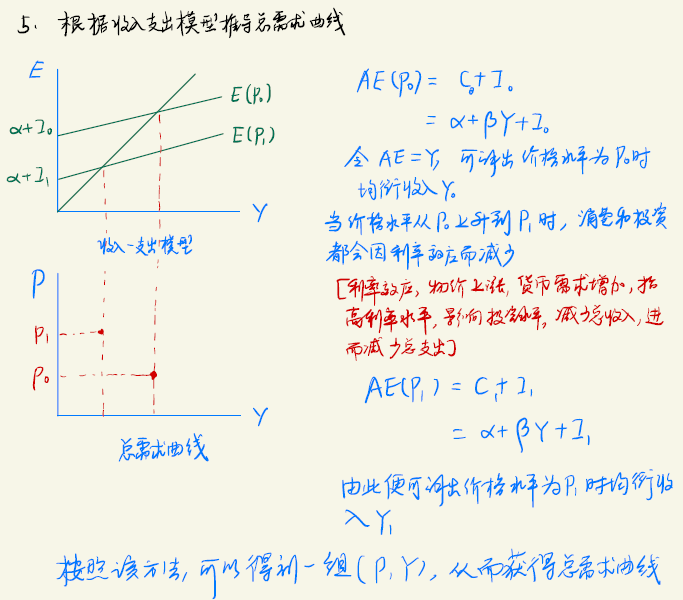 5. 根据收入支出模型推导总需求曲线
E
E(P₀)
α+I₀
E(P₁)
α+I₁
Y
收入-支出模型
P
P₁
P₀
Y
总需求曲线
AE(P₀) = C₀+I₀
= α+βY+I₀
令 AE=Y, 可求出价格水平为P₀时
均衡收入Y₀
当价格水平从P₀上升到P₁时, 消费和投资
都会因利率效应而减少
[利率效应, 物价上涨, 货币需求增加, 抬
高利率水平, 影响投资水平, 减少总收入, 进
而减少总支出]
AE(P₁) = C₁+I₁
= α+βY+I₁
由此便可求出价格水平为P₁时均衡收
入Y₁
按照该方法, 可以得到一组(P,Y), 从而获得总需求曲线